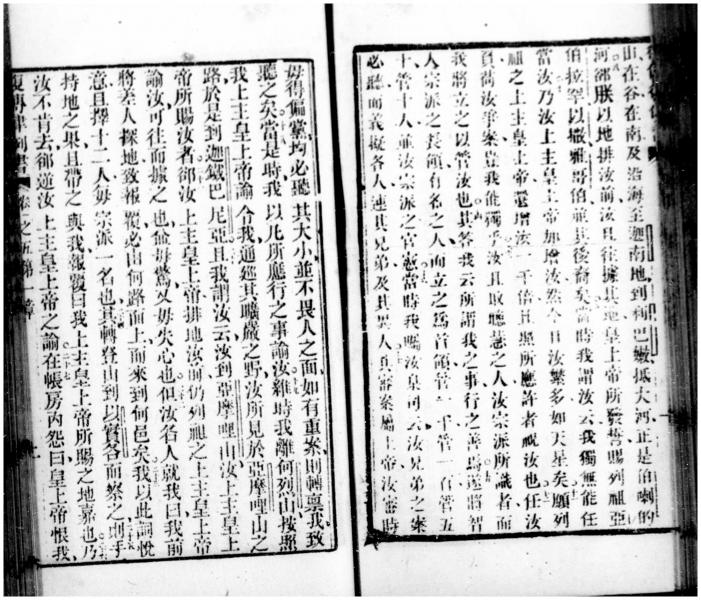 山在谷在南及沿海至迦南地到利巴嫩抵大河正是伯喇的
河郤朕以地排汝前汝且往據其地皇上帝所發誓賜列祖亞
伯拉罕以撒雅哥伯並其後裔矣當時我謂汝云我獨無能任
當汝乃汝上主皇上帝加增汝然今日汝繁多如天星矣願列
祖之上主皇上帝還增汝一千倍且照所應許者祝汝也任汝
負荷汝爭案豈我能獨乎汝且取聰慧之人汝宗派所識者而
我將立之以管汝也其答我云所謂我之事行之善焉遂將智
人宗派之長領有名之人而立之為首領管一千管一百管五
十管十人並汝宗派之官憲當時我囑汝臬司云汝兄弟之案
必聽而義擬各人連其兄弟及其異人具審案屬上帝汝審時
毋得偏黨均必聽其大小並不畏人之面如有重案則轉禀我致
聽之矣當是時我以凡所應行之事諭汝維時我離何烈山按照
我上主皇上帝諭令我通經其曠嚴之野汝所見於亞摩哩山之
路於是到迦鐵巴尼亞且我謂汝云汝到亞摩哩山汝上主皇上
帝所賜汝者郤汝上主皇上帝排地汝前仍列祖之上主皇上帝
諭汝可往而據之也勿毋驚又毋失心也但汝各人就我曰我前
將差人探地致報覆必由何路而上而來到何邑矣我以此詞悅
意且擇十二人每宗派一名也其轉登山到以實各而察之則手
持地之果且帶之與我報覆曰我上主皇上帝所賜之地嘉也乃
汝不肯去郤逆汝上主皇上帝之諭在帳房內怨曰皇上帝恨我
復再律例書 卷一之五第一章